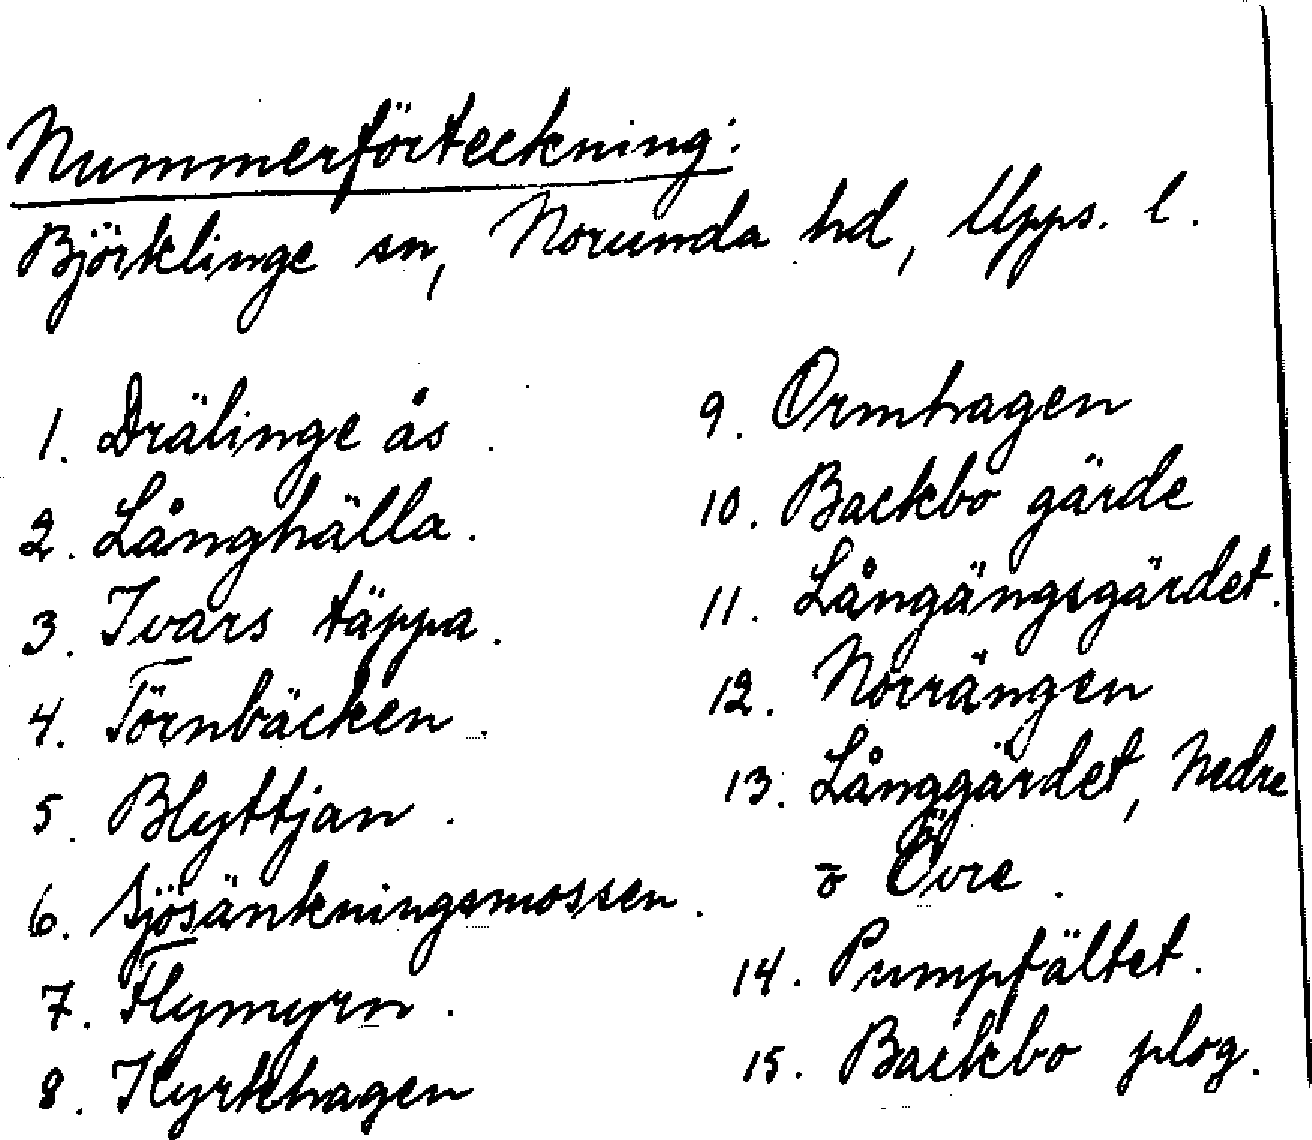 Nummerförteckning:
Björklinge sn, Norunda hd, Upps. l.
1. Drälinge ås.
2. Långhälla.
3. Ivars täppa.
4. Törnbäcken.
5. Blyttjan.
6. Sjösänkningsmossen.
7. Flymyrn.
8. Kyrkhagen
9. Ormhagen
10. Backbo gärde
11. Långängsgärdet.
12. Norrängen
13. Långgärdet, Nedre
o Övre.
14. Pumpfältet.
15. Backbo plog.